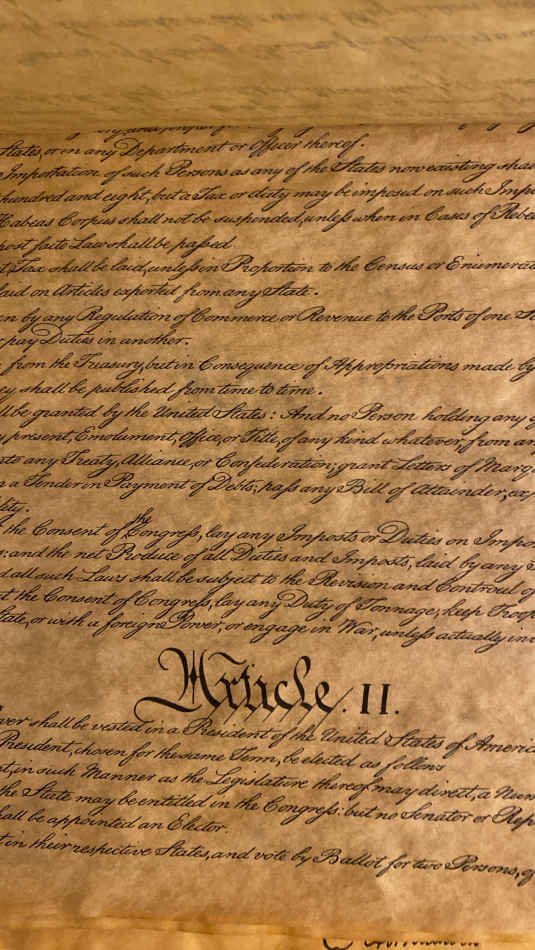 States, or in any Department or Officer thereof.
Importation of such Persons as any of the States now existing shall
hundred and eight, but a Tax or duty may be imposed on such Impor
Habeas Corpus shall not be suspended, unless when in Cases of Rebe
post facto Law shall be passed
Tax shall be laid, unless in Proportion to the Census or Enumerati
laid on Articles exported from any State.
en by any Regulation of Commerce or Revenue to the Ports of one St
pay Duties in another.
from the Treasury, but in Consequence of Appropriations made by
ey shall be published from time to time.
ll be granted by the United States: And no Person holding any
present, Emolument, Office, or Title, of any kind whatever, from an
into any Treaty, Alliance, or Confederation; grant Letters of Marq
a Tender in Payment of Debts; pass any Bill of Attainder, ex
lity.
the Consent of the Congress, lay any Imposts or Duties on Impo
; and the net Produce of all Duties and Imposts, laid by any
d all such Laws shall be subject to the Revision and Controul of
t the Consent of Congress, lay any Duty of Tonnage, keep Troop
State, or with a foreign Power, or engage in War, unless actually inv
Article. II.
wer shall be vested in a President of the United States of America
President, chosen for the same Term, be elected as follows
t, in such Manner as the Legislature thereof may direct, a Num
the State may be entitled in the Congress: but no Senator or Rep
hall be appointed an Elector.
t in their respective States, and vote by Ballot for two Persons, of